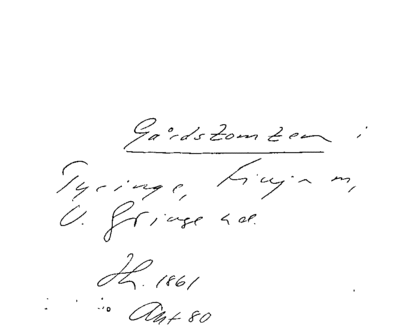 Gårdstomten i
Tyringe, Finja m,
V. Göinge hd.
Th. 1861
Ant 80